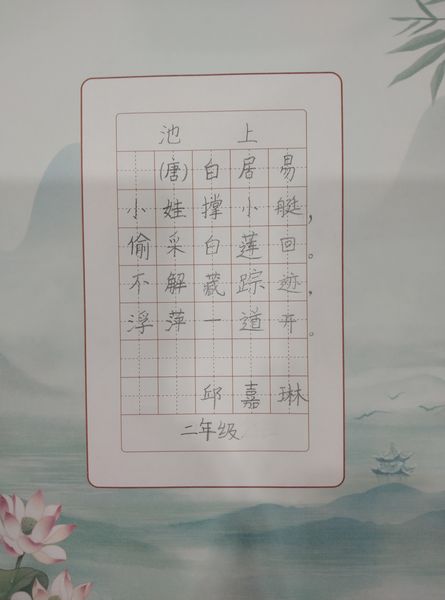 池上
(唐)白居易
小娃撑小艇，
偷采白莲回。
不解藏踪迹，
浮萍一道开。
邱嘉琳
二年级